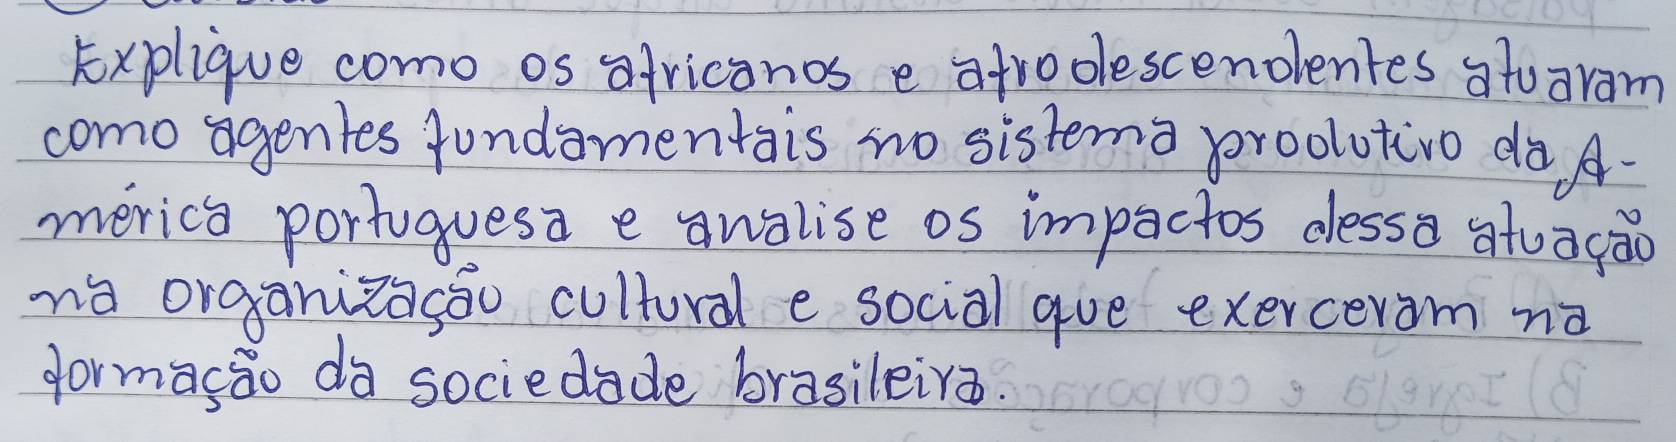 Explique como os africanos e afrodescendentes atuaram
como agentes fundamentais no sistema produtivo da A-
mérica portuguesa e analise os impactos dessa atuação
na organização cultural e social que exerceram na
formação da sociedade brasileira.